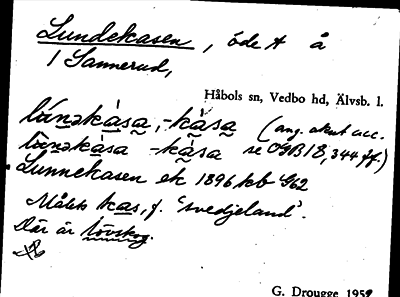 Lundekasen, öde t å
1 Sannerud,
Håbols sn, Vedbo hd, Älvsb. l.
lúnəkàsa, -kàsa (ang. akut acc.
lùnəkàsa -kàsa se OGB 18, 344 ff.)
Lunnekasen ek 1896 kb G62
Målets kas, f. 'svedjeland'.
Där är lövskog.
G. Drougge 1959